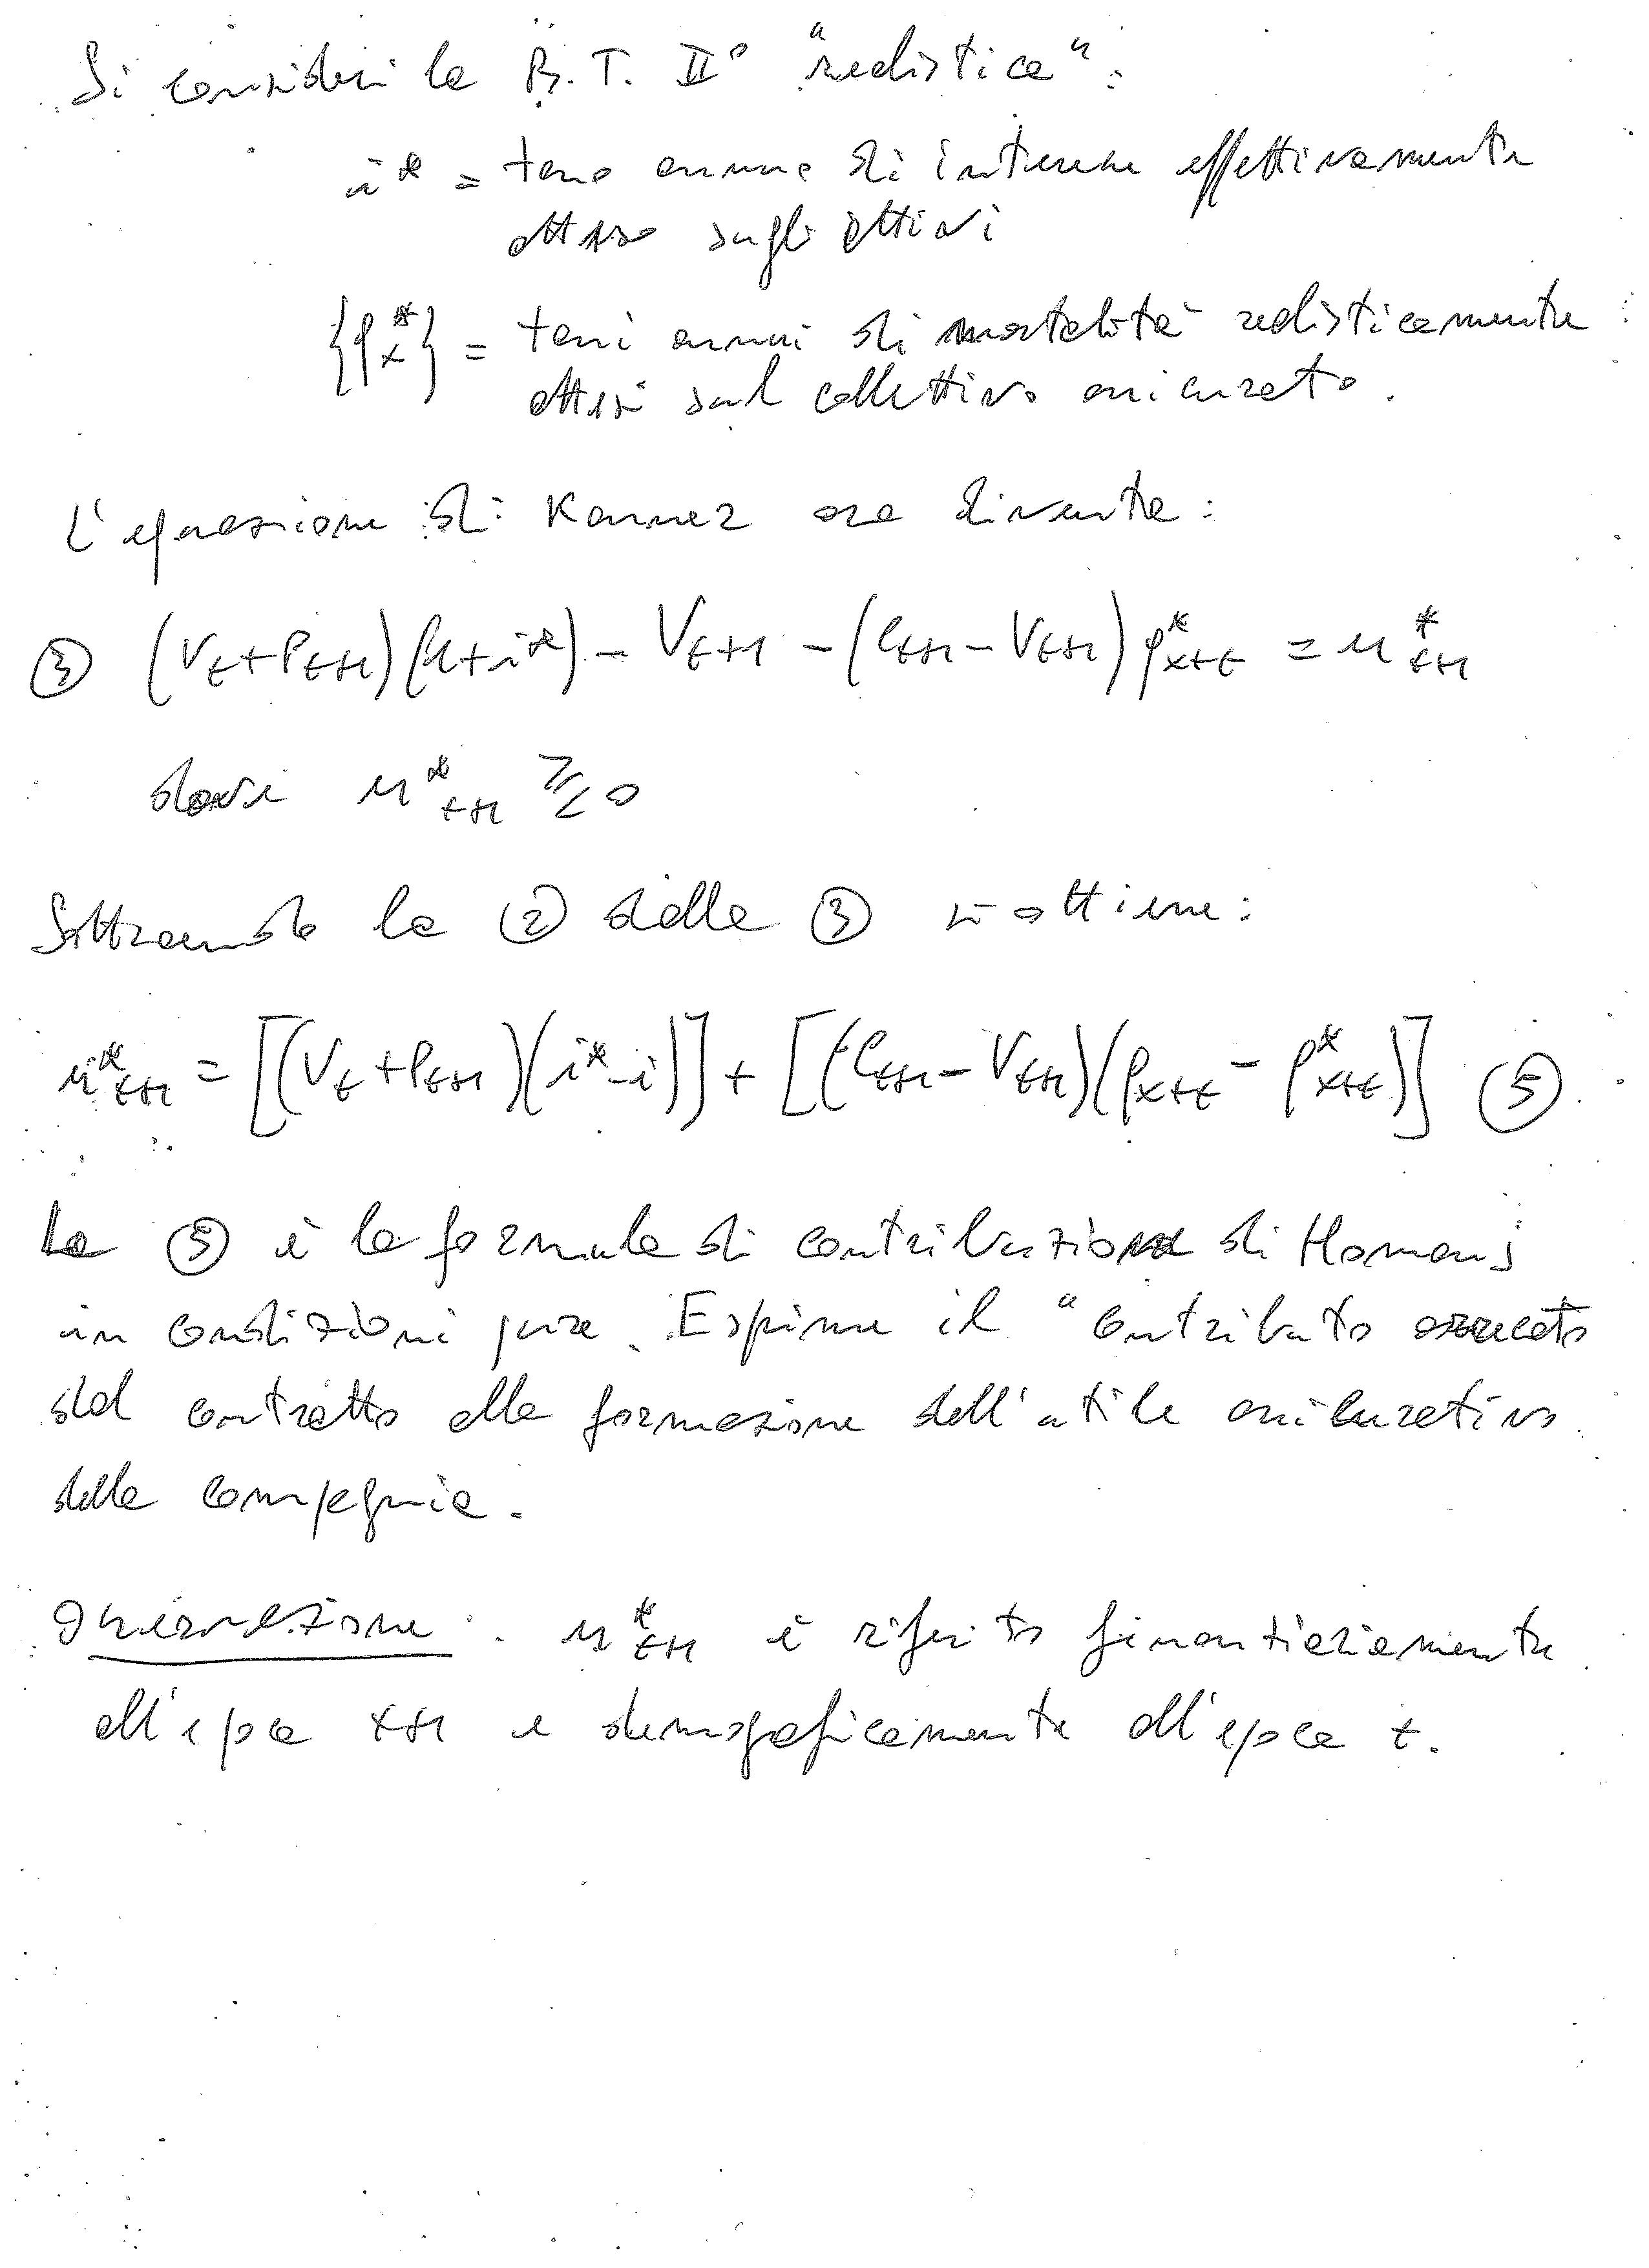 Si consideri la B.T. II° "realistica":
i* = tasso annuo di interesse effettivamente
atteso sugli attivi
{q*ₓ} = tassi annui di mortalità realisticamente
attesi sul collettivo assicurato.
L'equazione di Kanner ora diventa:
③ (V_t + P_{t+1})(1 + i*) - V_{t+1} - (C_{t+1} - V_{t+1}) q*_{x+t} = u*_{t+1}
dove u*_{t+1} ⋛ 0
Sottraendo la ② dalla ③ si ottiene:
u*_{t+1} = [(V_t + P_{t+1})(i* - i)] + [(C_{t+1} - V_{t+1})(q_{x+t} - q*_{x+t})] ⑤
La ⑤ è la formula di contribuzione di Homans
in condizioni pure. Esprime il "contributo
del contratto alla formazione dell'utile assicurativo
della compagnia.
Osservazione: u*_{t+1} è riferito finanziariamente
all'epoca t+1 e demograficamente all'epoca t.